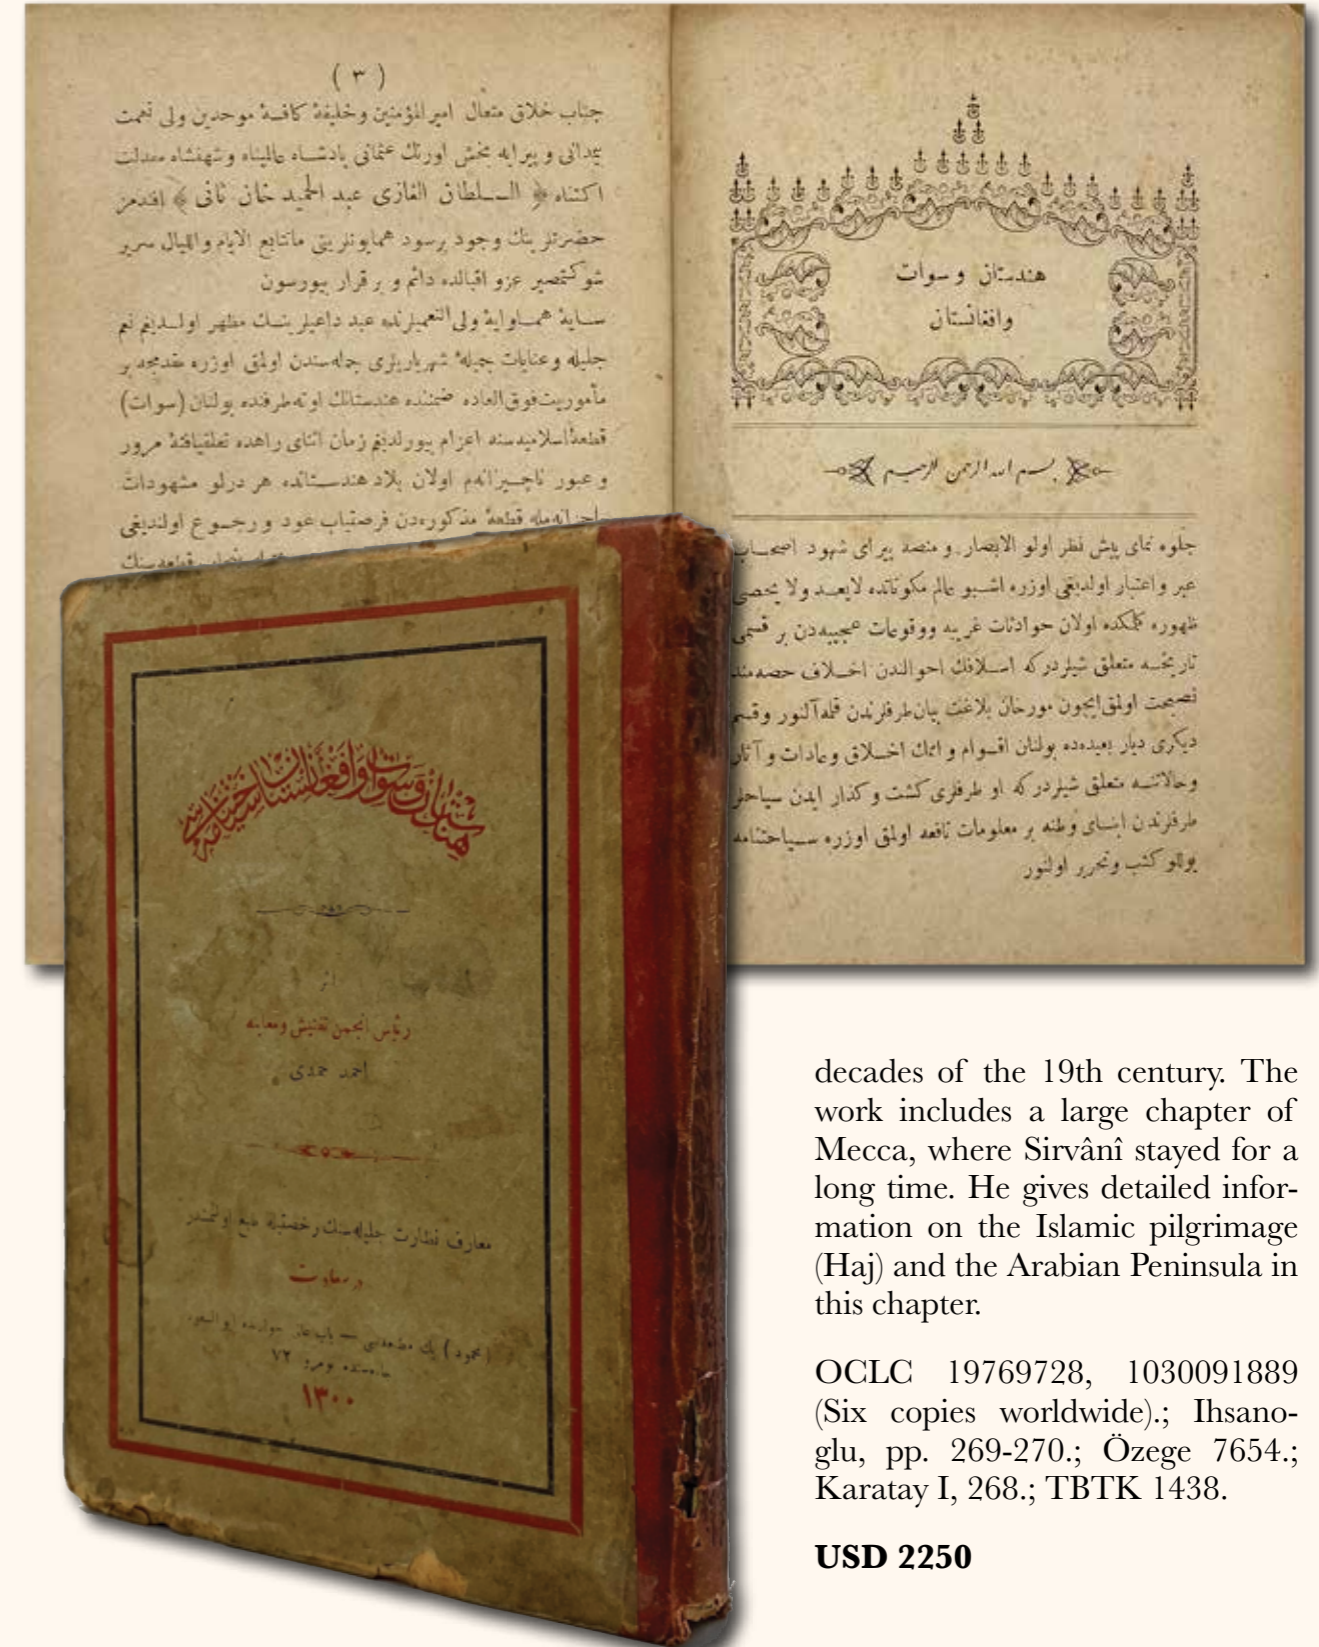 ( ٣ )
جناب خلاق متعال امیر المؤمنین و خلیفهٔ کافهٔ موحدین ولی نعمت
بیمدانی و پیرایه بخش اورنك عثمانی پادشاه عالمپناه و شهنشاه معدلت
اکتناه ﴿ السلطان الغازی عبد الحمید خان ثانی ﴾ افندمز
حضرتلرینك وجود پرسود همایونلرینی ماتتابع الایام واللیال سریر
شوکتمصیر عزو اقبالده دائم و بر قرار بیورسون
سایهٔ همایوایهٔ ولی النعمیلرنده عبد داعیلرینك مظهر اولدیغم نعم
جلیله و عنایات جمیلهٔ شهریاریلری جمله‌سندن اولمق اوزره مقدمجه بر
مأموریت فوق العاده ضمننده هندستانك اوته طرفنده بولنان (سوات)
قطعهٔ اسلامیه‌سنه اعزام بیورلدیغم زمان اثنای راهده تعلقیافتهٔ مرور
و عبور ناچیزانه‌م اولان بلاد هندستانده هر درلو مشهودات
قطعهٔ مذکوره‌دن فرصتیاب عود و رجوع اولندیغی
هندستان و سوات
وافغانستان
بسم الله الرحمن الرحیم
جلوه نمای پیش نظر اولو الابصار و منصه پیرای شهود اصحاب
عبر و اعتبار اولدیغی اوزره اشبو عالم مکوناتده لایعد ولا یحصی
ظهوره کلمکده اولان حوادثات غریبه ووقوعات عجیبه‌دن بر قسمی
تاریخه متعلق شیلردرکه اسلافك احوالندن اخلاف حصه‌مند
نصیحت اولمق ایچون مورخان بلاغت بیان طرفلرندن قلمه آلنور وقسم
دیکری دیار بعیده‌ده بولنان اقوام و اممك اخلاق وعادات و آثار
وحالاتنه متعلق شیلردرکه او طرفلری کشت و کذار ایدن سیاحلر
طرفلرندن ابنای وطنه بر معلومات نافعه اولمق اوزره سیاحتنامه
یوللو کتب وتحریر اولنور
هندستان وسوات وافغانستان سیاحتنامه‌سی
اثر
رئیس انجمن تفتیش ومعاینه
احمد حمدی
معارف نظارت جلیله‌سنك رخصتیله طبع اولنمشدر
در سعادت
( محمود ) بك مطبعه‌سی — باب عالی جوارنده ابو السعود
جاده‌سنده نومرو ٧٢
١٣٠٠
decades of the 19th century. The
work includes a large chapter of
Mecca, where Sirvânî stayed for a
long time. He gives detailed infor-
mation on the Islamic pilgrimage
(Haj) and the Arabian Peninsula in
this chapter.
OCLC 19769728, 1030091889
(Six copies worldwide).; Ihsano-
glu, pp. 269-270.; Özege 7654.;
Karatay I, 268.; TBTK 1438.
USD 2250